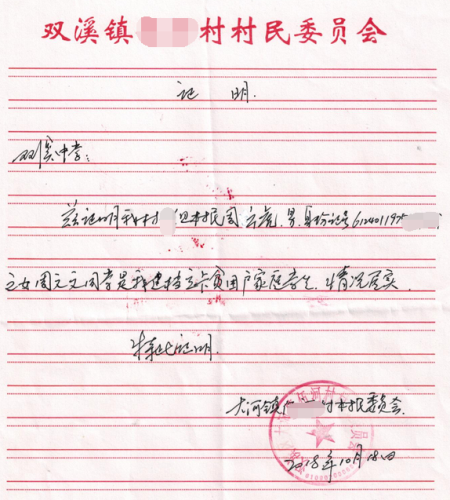 双溪镇 村村民委员会
证明.
双溪中学:
兹证明我村 组村民周云虎,男.身份证号612401197
之女周文文同学是我建档立卡贫困户家庭学生.情况属实.
特此证明.
大河镇广 村村民委员会.
2018年10月18日